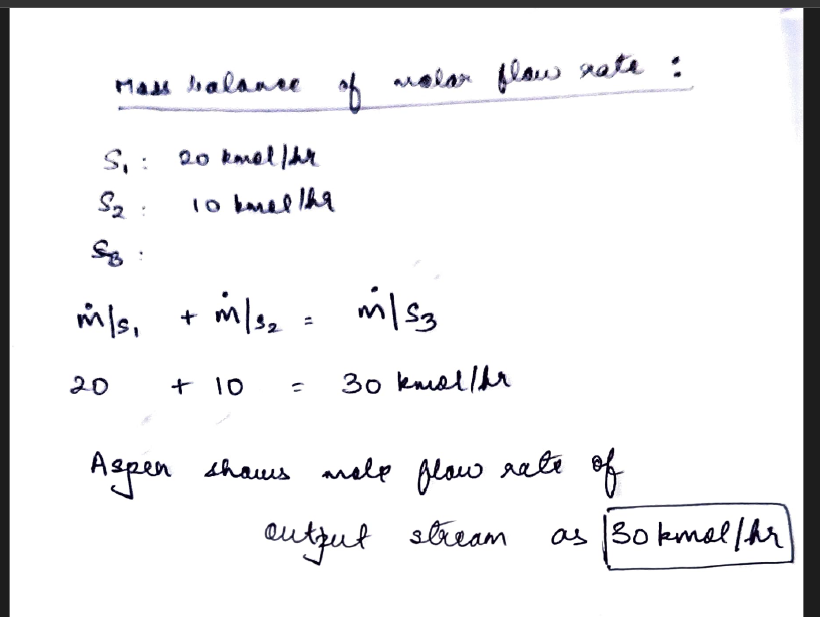 Mass balance of molar flow rate :
S₁ : 20 kmol/hr
S₂ : 10 kmol/hr
S₃ :
ṁ|S₁ + ṁ|S₂ = ṁ|S₃
20 + 10 = 30 kmol/hr
Aspen shows mole flow rate of
output stream as 30 kmol/hr